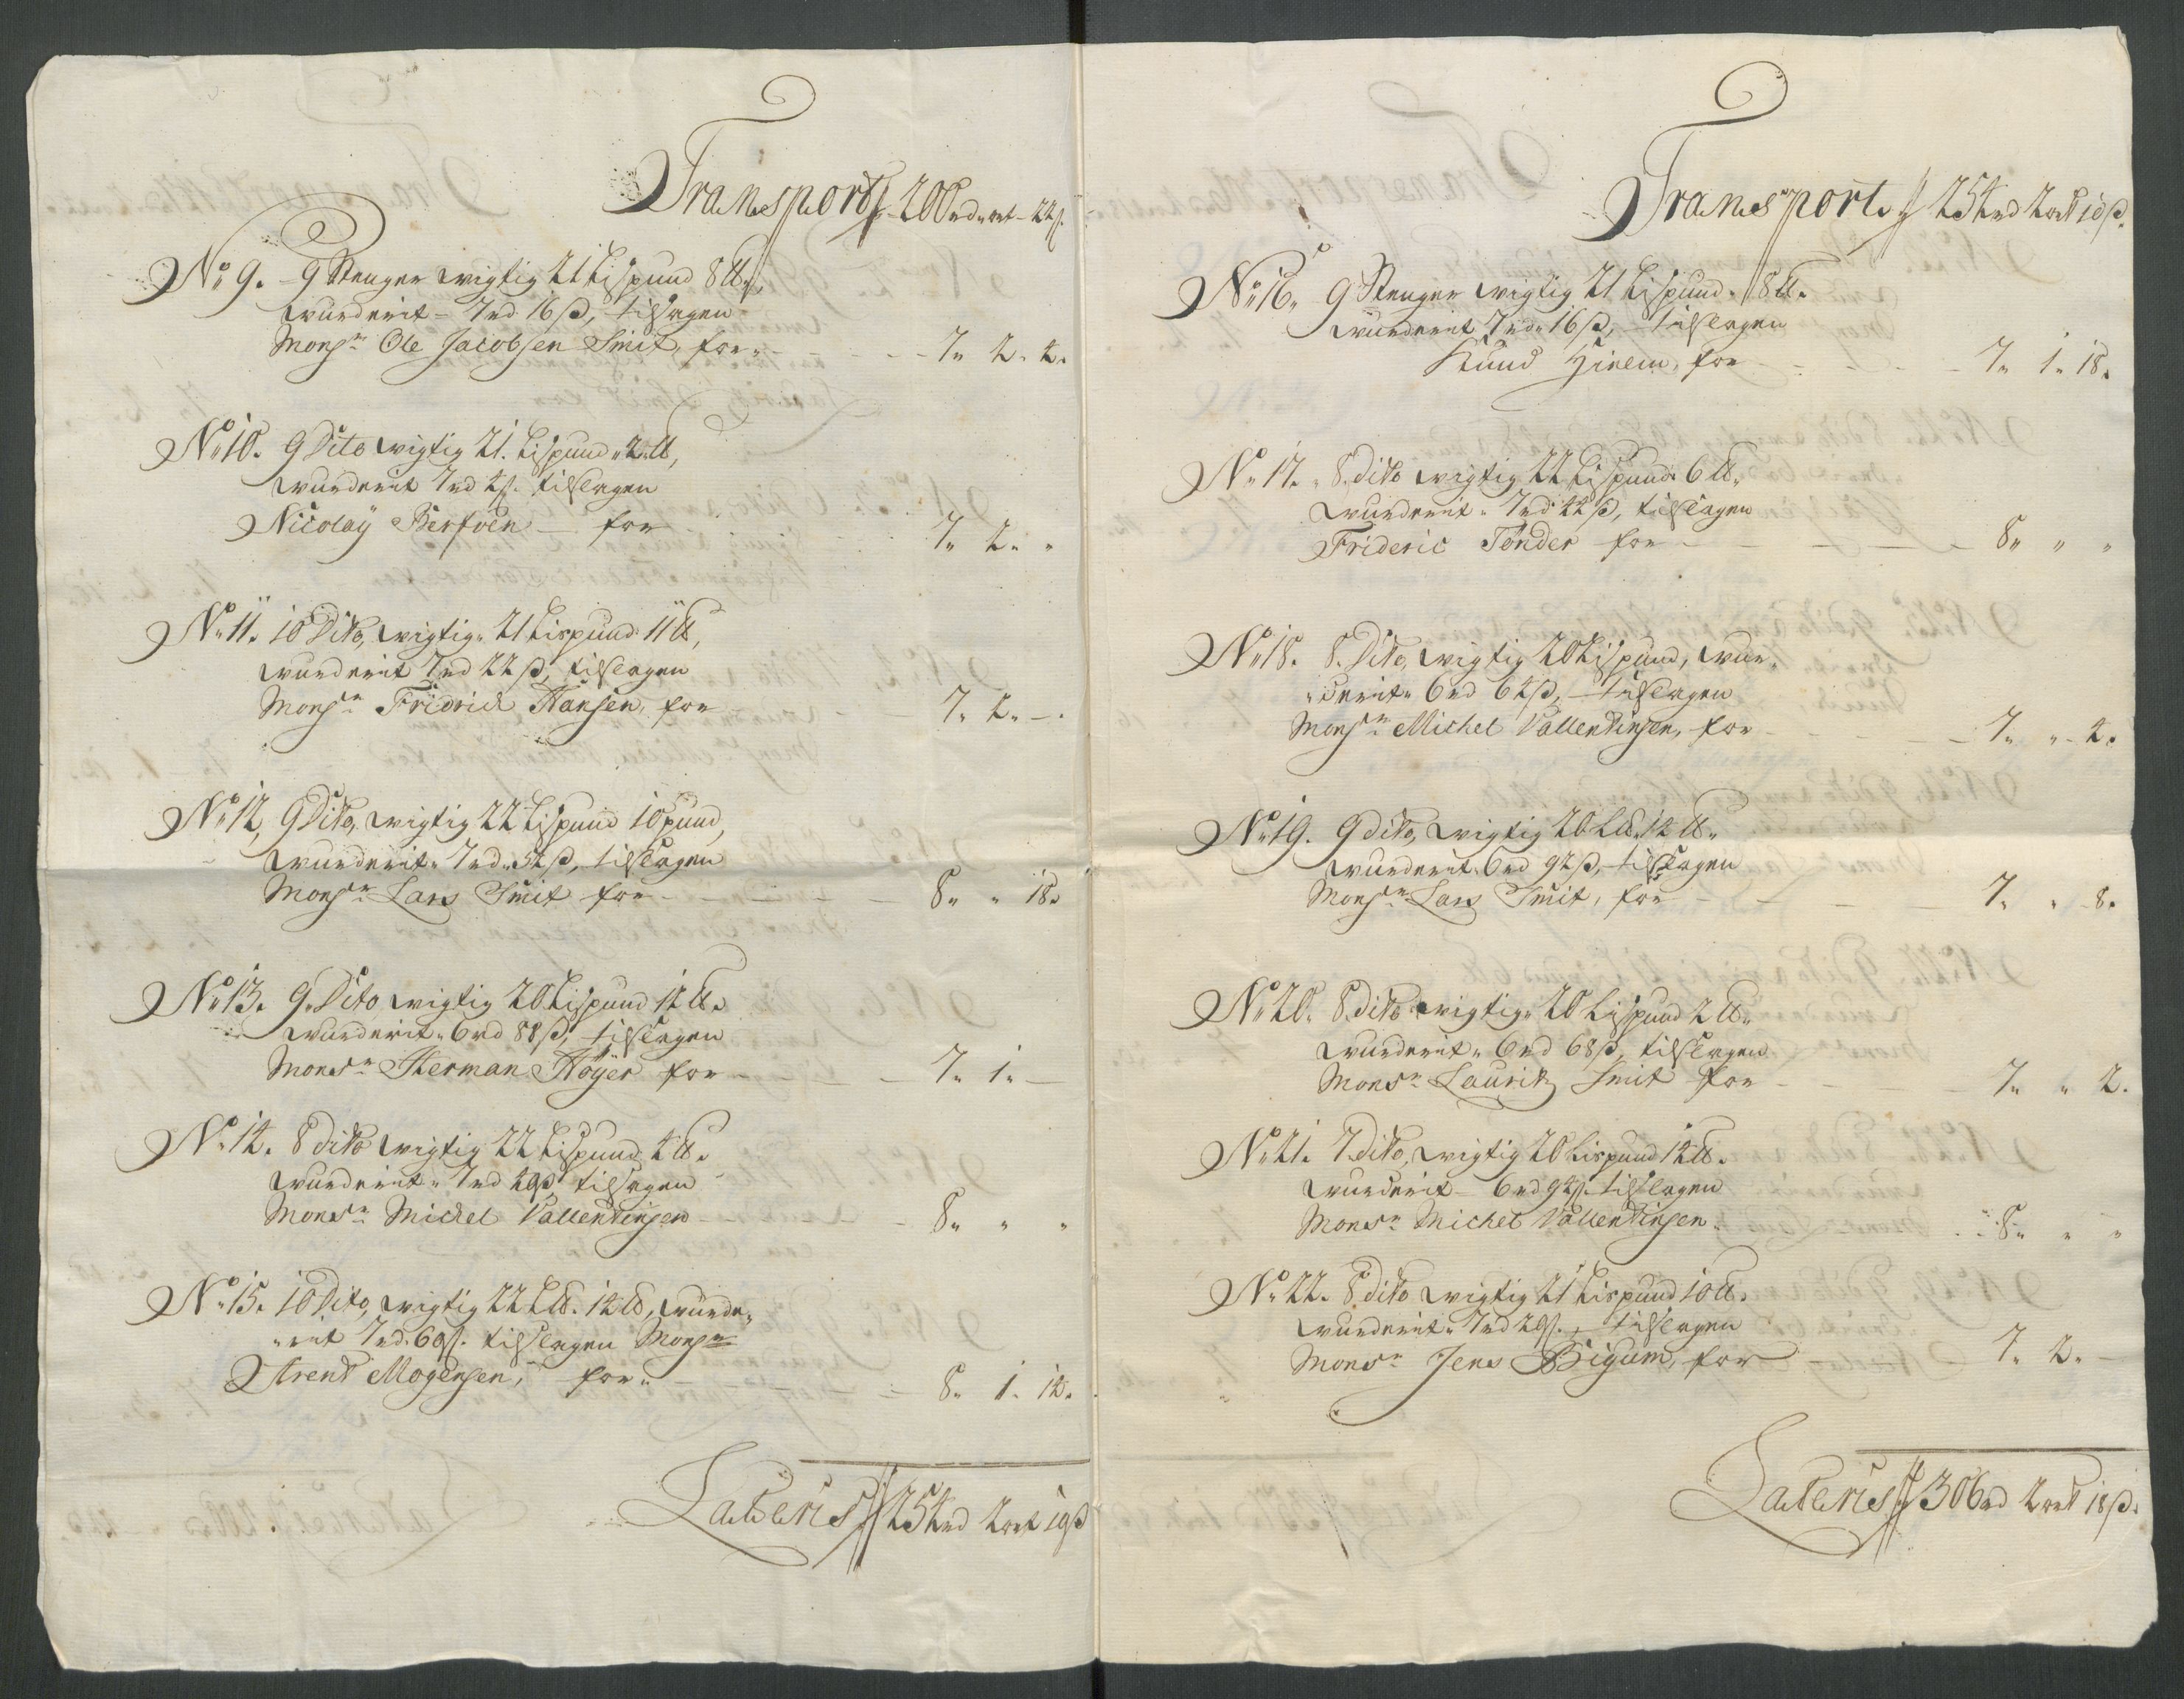 Transport 200rd " ort - 22ß.
No 9. 9 Stenger wigtig 21 Lispund 8 ℔.,
wurderit - 7rd 16ß, tilslagen
Monsr Ole Jacobsen Smit, for - 7" 2" 4.
No 10. 9 Dito wigtig 21. Lispund " 2 ℔,
wurderit 7rd 4ß. tilslagen
Nicolaÿ Berfoen - for 7" 2" "
No 11. 10 Dito, wigtig 21 Lispund 11 ℔,
wurderit 7rd 22ß, tilslagen
Monsr Fridrich Hansen, for 7" 2" -.
No 12, 9 Dito, wigtig 22 Lispund 10 pund,
wurderit " 7rd " 52ß, tilslagen
Monsr Lars Smit for - 8" " 18.
No 13. 9 " Dito wigtig 20 Lispund 14 ℔.
wurderit " 6rd 88ß, tilslagen
Monsr Herman Höyer for - 7" 1" -
No 14. 8 dito wigtig 22 Lispund 4 ℔.
wurderit " 7rd 40ß tilslagen
Monsr Michel Vallentinsen - 8" " "
No 15. 10 Dito, wigtig 22 L℔. 14 ℔, wurde-
"rit 7rd. 60ß. tilslagen Monsr
Arent Mogensen, for " 8" 1" 14.
Lateris 254rd 2ort 10ß
Transport 254rd 2ort 10ß.
No 16" 9 Stenger wigtig 21 Lispund " 8 ℔.
wurderit 7rd " 16ß, tilslagen
Knud Hielm, for - 7" 1" 18.
No 17. 8. dito wigtig 22 Lispund 6 ℔.
wurderit " 7rd 44ß, tilslagen
Frideric Tönder for - 8" " "
No 18. 8. Dito, wigtig 20 Lispund, wur-
"derit " 6rd 64ß, tilslagen
Monsr Michel Vallentinsen, for - 7" " 4.
No 19. 9 dito, wigtig 20 L℔. 14 ℔.
wurderit 6rd 92ß, tilslagen
Monsr Lars Smit, for - 7" " 8.
No 20. 8. dito wigtig " 20 Lispund 2 ℔.
wurderit " 6rd 68ß, tilslagen
Monsr Lauritz Smit for - 7" " 2.
No 21. 7. dito, wigtig 20 Lispund 14 ℔.
wurderit - 6rd 92ß. tilslagen
Monsr Michel Vallentinsen. 8" " "
No 22. 8 dito wigtig 21 Lispund 10 ℔.
wurderit " 7rd 20ß., tilslagen
Monsr Jens Bigum, for 7. 2" -
Lateris 306rd 2ort 18ß.